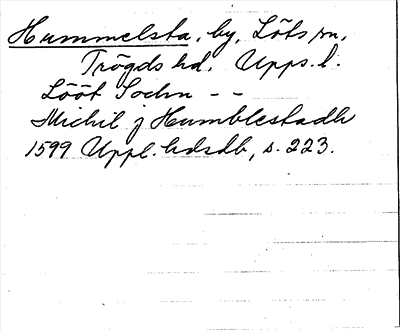 Hummelsta, by, Löts sn,
Trögds hd. Upps. l.
Lööt Sochn - -
Michil j Humblestadh
1599 Uppl. hdsdb, s. 223.